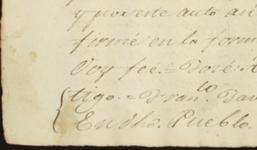 y por este auto así
firmé en la form
Doy fee.= José A
tigo.= Fran.co Dav
En dho. Pueblo